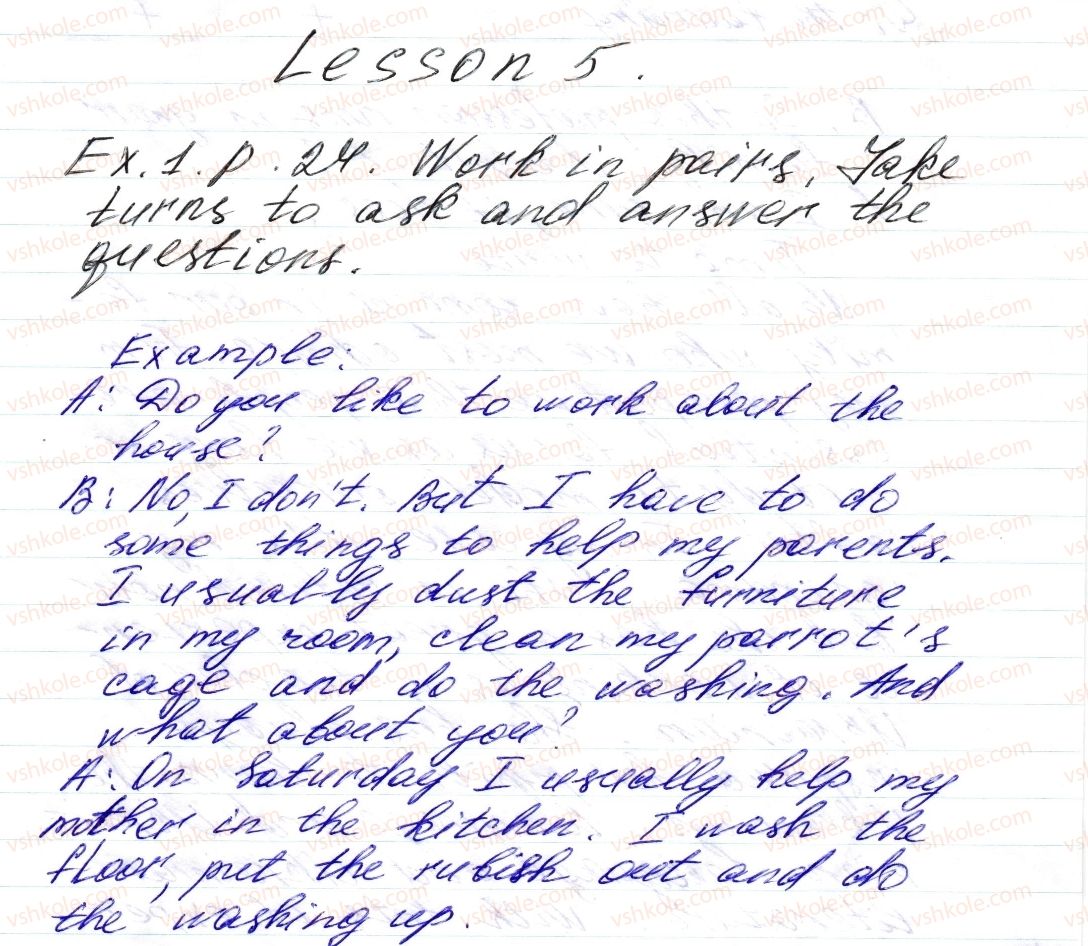 Lesson 5.
Ex. 1. p. 24. Work in pairs. Take
turns to ask and answer the
questions.
Example:
A: Do you like to work about the
house?
B: No, I don't. But I have to do
some things to help my parents.
I usually dust the furniture
in my room, clean my parrot's
cage and do the washing. And
what about you?
A: On Saturday I usually help my
mother in the kitchen. I wash the
floor, put the rubish out and do
the washing up.